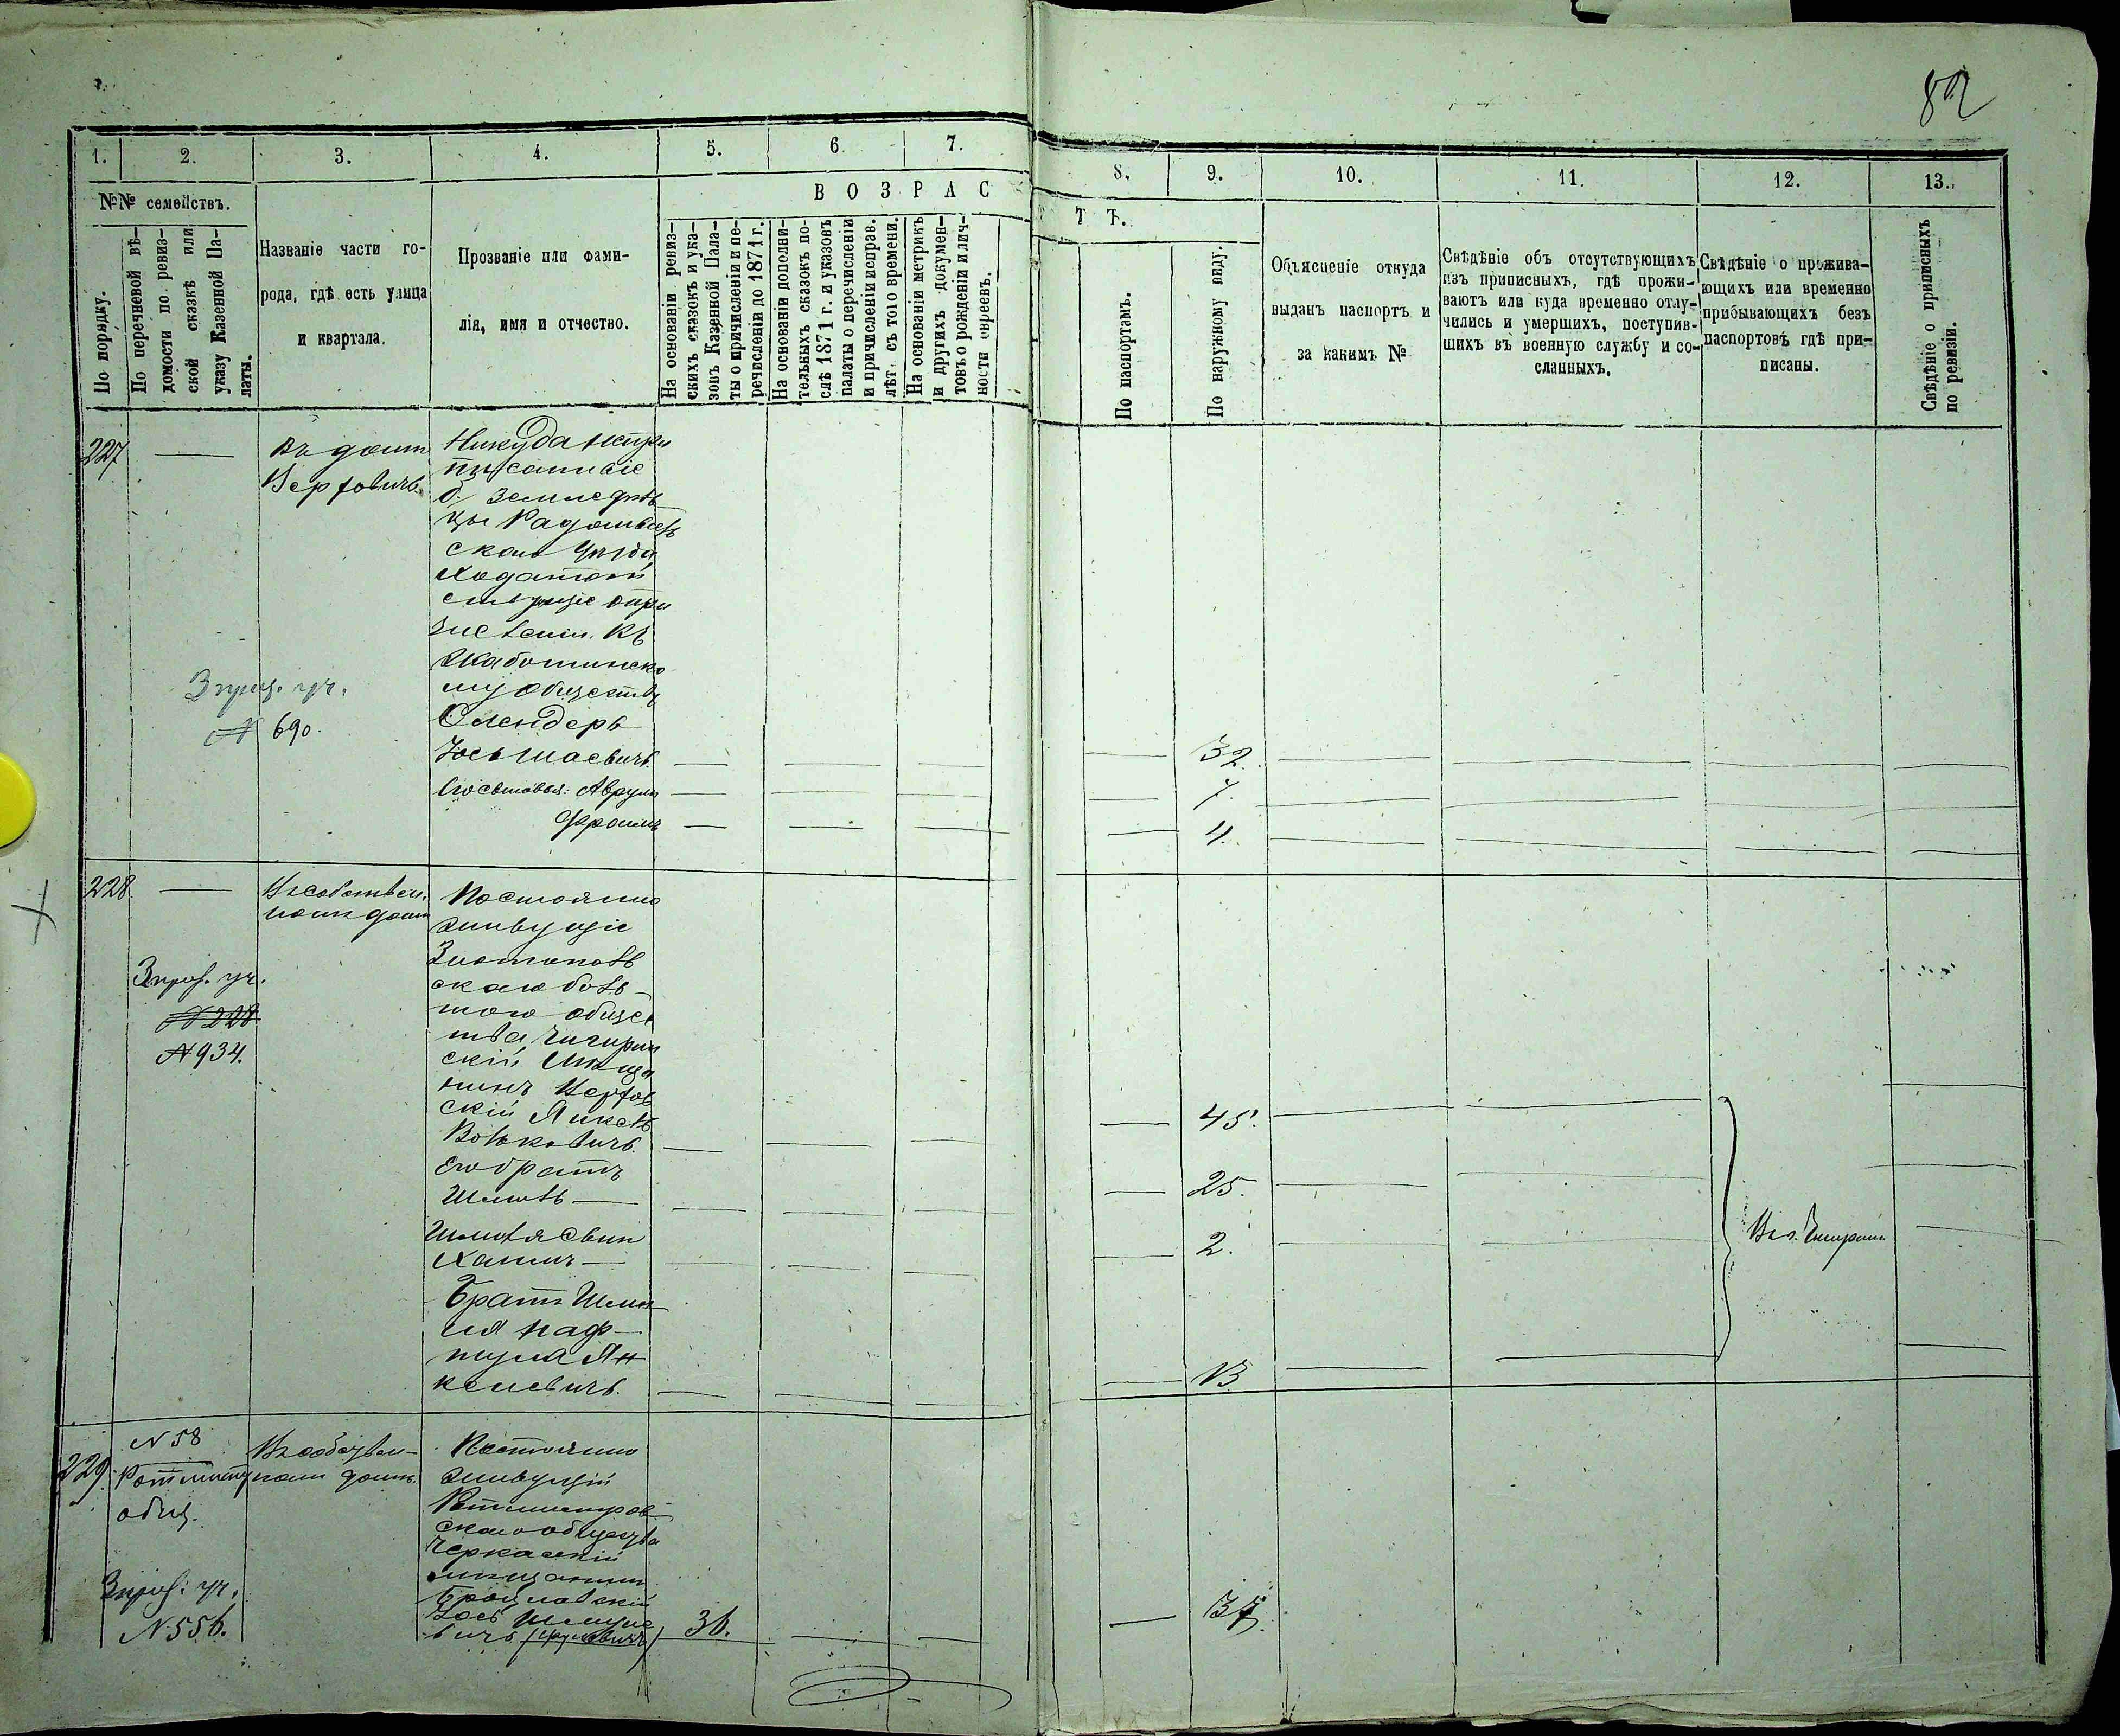 82
1. 2. 3. 4. 5. 6. 7. 8. 9. 10. 11. 12. 13.
№№ семействъ.
По порядку.
По перечневой вѣ-
домости по ревиз-
ской сказкѣ или
указу Казенной Па-
латы.
Названіе части го-
рода, гдѣ есть улица
и квартала.
Прозваніе или фами-
лія, имя и отчество.
ВОЗРАСТЪ.
На основаніи ревиз-
скихъ сказокъ и ука-
зовъ Казенной Пала-
ты о причисленіи и пе-
речисленіи до 1871 г.
На основаніи дополни-
тельныхъ сказокъ по-
слѣ 1871 г. и указовъ
палаты о перечисленіи
и причисленіи исправ.
лѣт. съ того времени.
На основаніи метрикъ
и другихъ докумен-
товъ о рожденіи и лич-
ности евреевъ.
По паспортамъ.
По наружному виду.
Объясненіе откуда
выданъ паспортъ и
за какимъ №
Свѣдѣніе объ отсутствующихъ
изъ приписныхъ, гдѣ прожи-
ваютъ или куда временно отлу-
чились и умершихъ, поступив-
шихъ въ военную службу и со-
сланныхъ.
Свѣдѣніе о прожива-
ющихъ или временно
прибывающихъ безъ
паспортовъ гдѣ при-
писаны.
Свѣдѣніе о приписныхъ
по ревизіи.
227
Въ домѣ
Никуда непри
писанные
б. Земледѣль
цы Радомысль
скаго Уѣзда
Ходатай
ствующіе опри
численіи Къ
Жаботинско
му Обществу
Олендеръ
Іось Шаевичъ 32.
Его сыновья: Аврумъ 7.
Фроимъ 4.
3 приз. уч.
№ 690.
228
Въ собствен.
номъ домѣ
Постоянно
живущіе
Златополь
скаго
того общес
тва Чигирин
скій Мѣща
нинъ
скій Янкель
Волковичъ 45.
Его братъ
Шмуль 25.
Шмуля Сынъ
Хаимъ 2.
Братъ Шму
ля Наф
тула Ян
келевичъ 13
3 приз. уч.
№ 228
№ 934.
229.
№ 58
Ротмистр
общ.
Въ собствен-
номъ домѣ
Постоянно
живущій
Ротмистров
скаго общества
Черкаскій
мѣщанинъ
Браславскій
Іось Шмуле
вичъ 36. 37.
3 приз. уч.
№ 556.